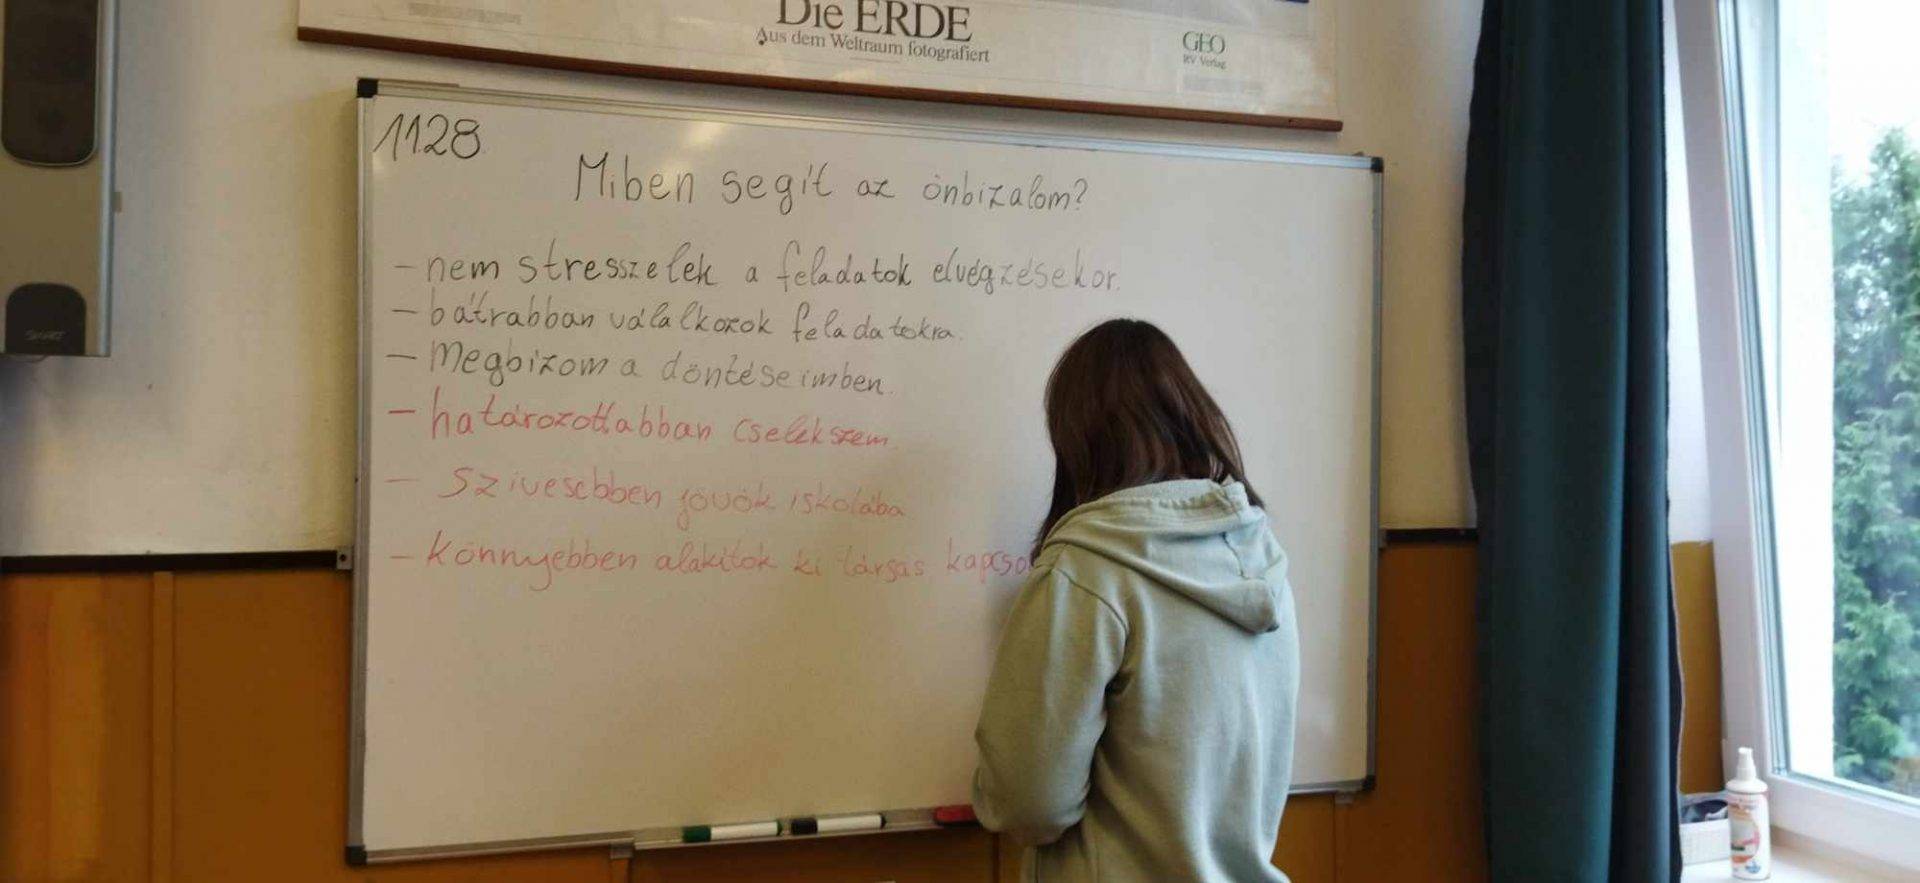 Die ERDE
Aus dem Weltraum fotografiert
GEO
RV Verlag
1128
Miben segít az önbizalom?
- nem stresszelek a feladatok elvégzésekor.
- bátrabban válalkozok feladatokra.
- Megbízom a döntéseimben.
- határozottabban cselekszem.
- Szivesebben jövök iskolába
- Könnyebben alakítok ki társas kapcso
SMART